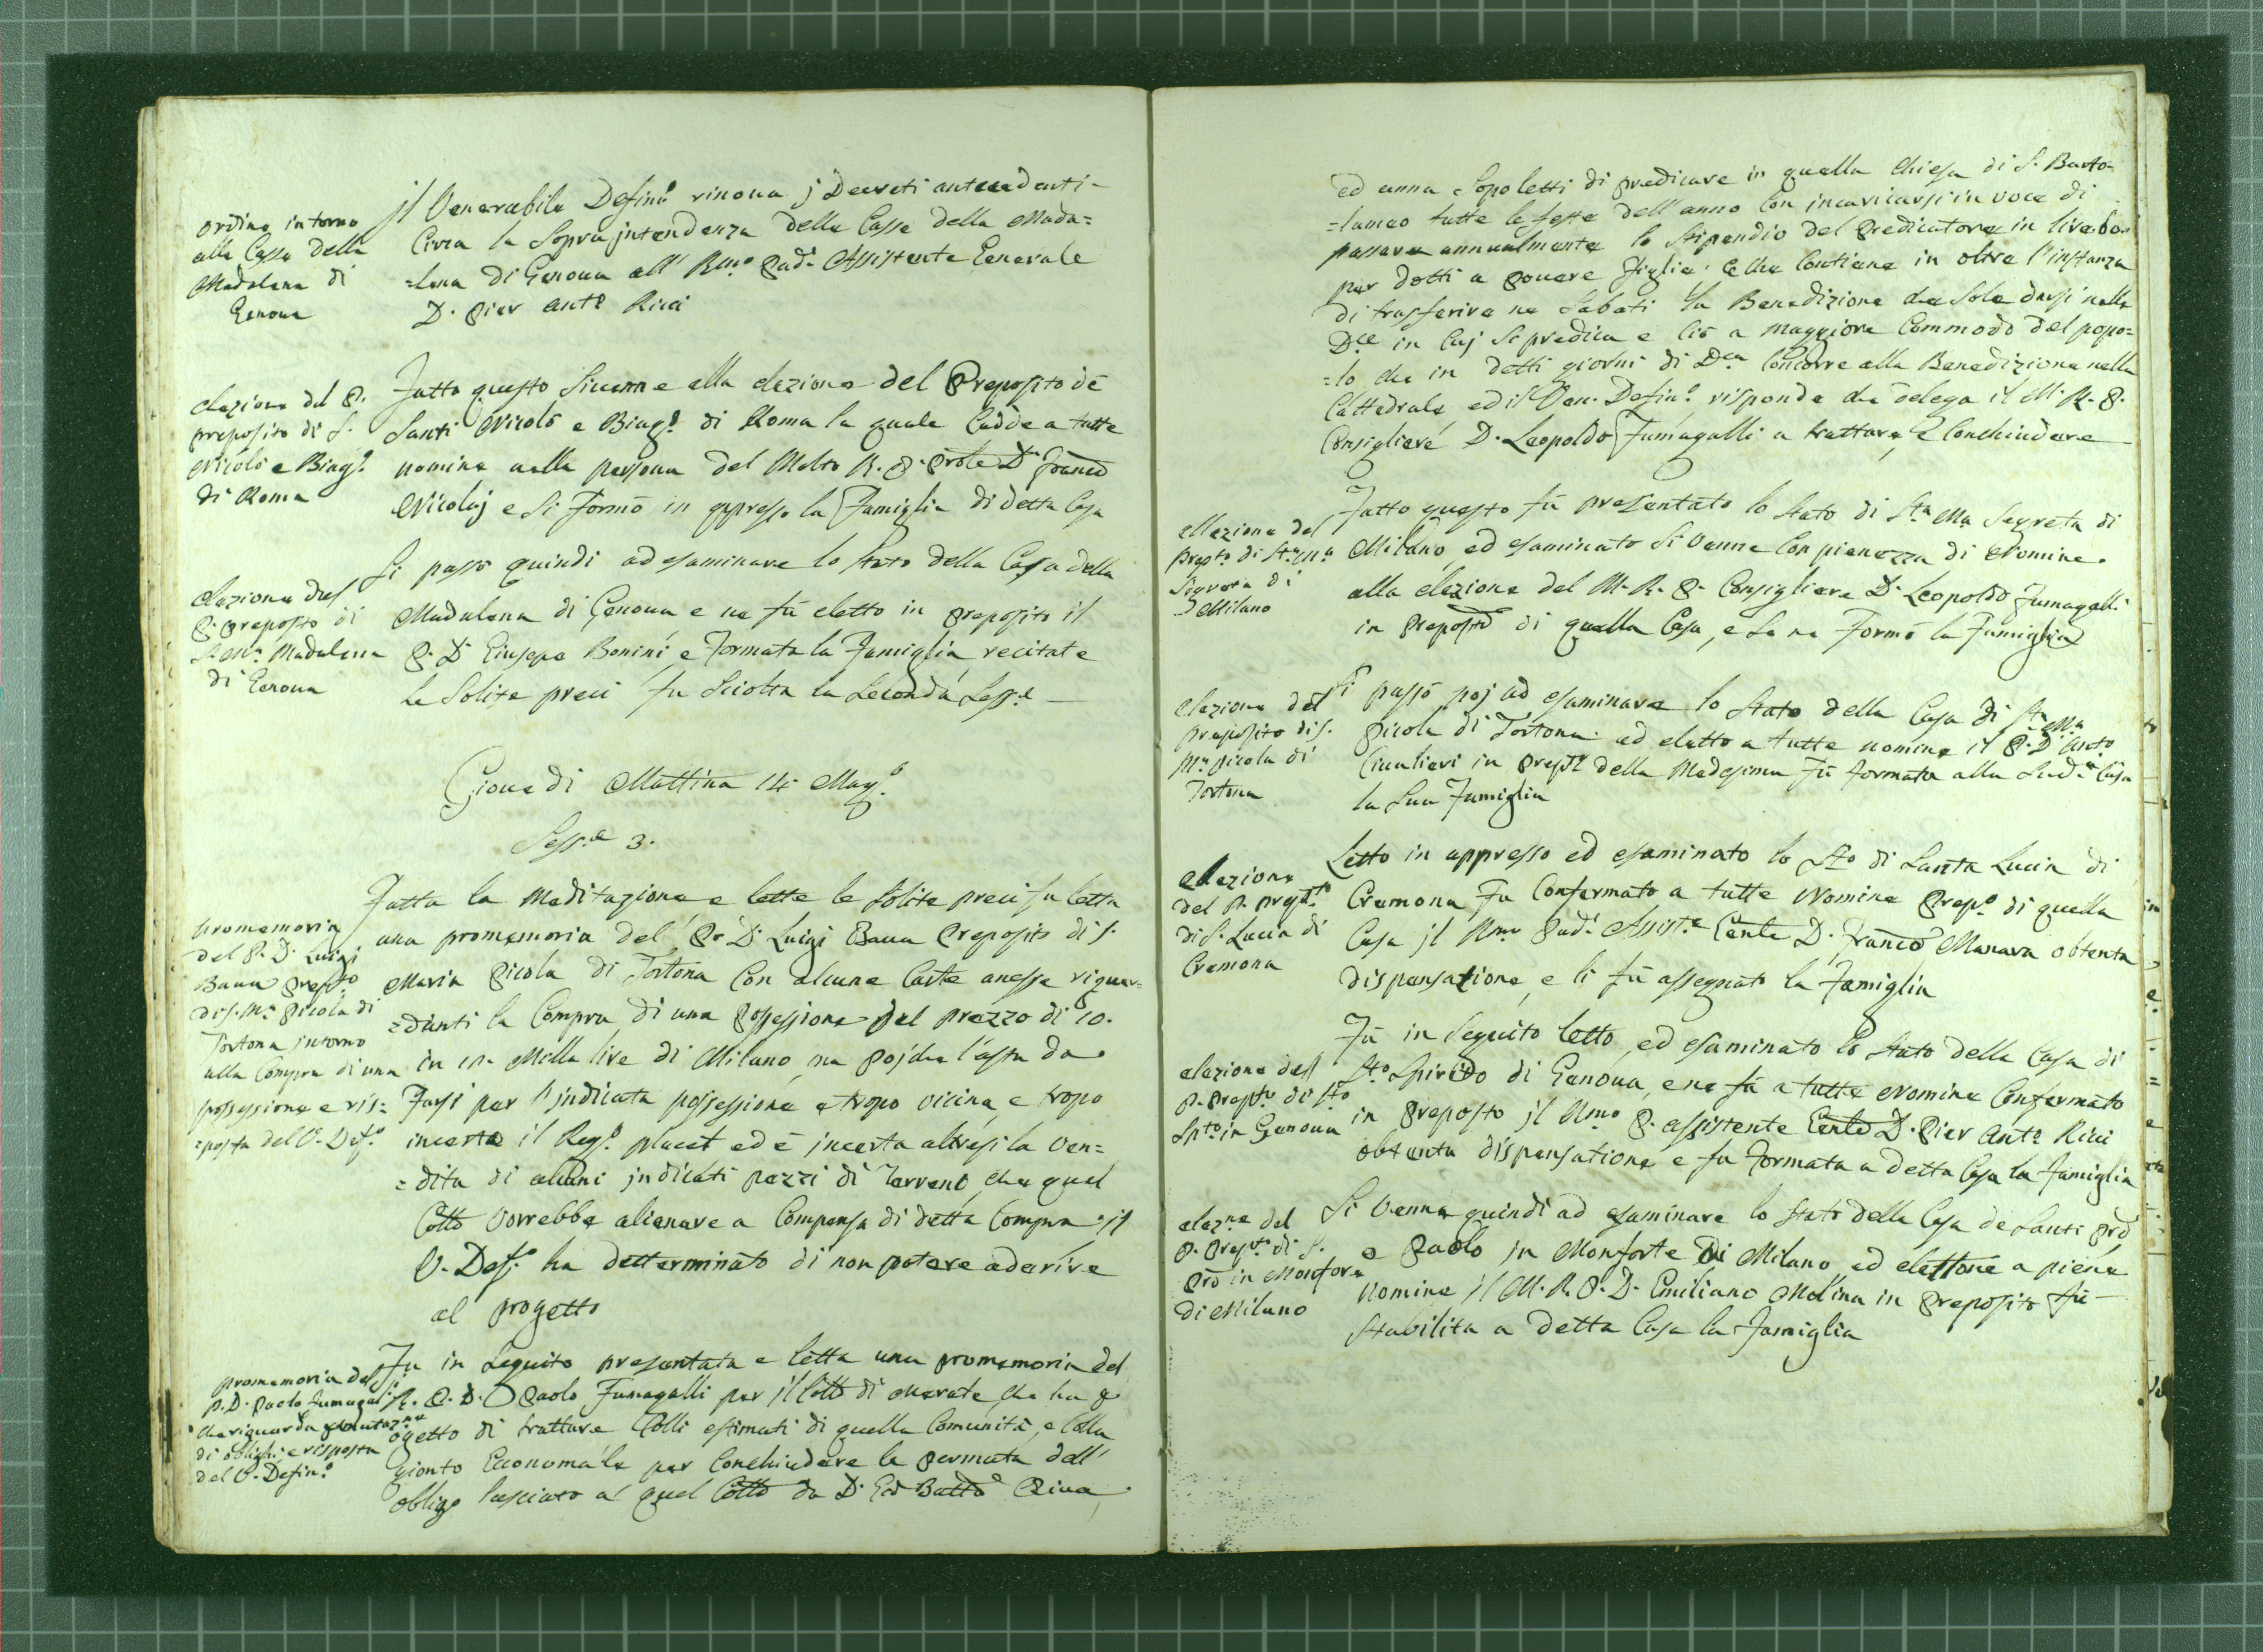 ordine intorno
alla Cassa della
Madalena di
Genova
il Venerabile Defin.o rinova j Decreti antecedenti
Circa la Sopra jntendenza della Cassa della Mada=
=lena di Genova all' Rmo Pad.e Assistente Generale
D. Pier Ant.o Ricci
elezione del P.
preposito di S.
Nicolò e Biag.o
di Roma
Fatto questo si venne alla elezione del Preposito de
Santi Nicolò e Biag.o di Roma la quale Cadde a tutte
nomine nella persona del Molto R. P. D. Franco
Nicolaj e si formò in appresso la Famiglia di detta Casa
elezione del
P. preposto di
S. M.a Madalena
di Genova
Si passò quindi ad esaminare lo stato della Casa della
Madalena di Genova e ne fù eletto in preposito il
P. D. Giusepe Bonini e formata la Famiglia, recitate
le Solite preci fu Sciolta la Seconda Sess.e
Giovedi Mattina 14 Mag.o
Sess.e 3.
promemoria
del P. D. Luigi
Bava prep.to
di S. M.a Picola di
Tortona intorno
alla Compra di una
possessione e ris=
=posta del V. Def.o
Fatta la Meditazione e lette le Solite preci fu letta
una promemoria del Pr D. Luigi Bava Preposito di S.
Maria Picola di Tortona Con alcune Carte anesse riguar=
=danti la Compra di una Possessione del prezzo di 10.
in 12. Milla lire di Milano, ma poiche l'asta da
Farsi per l'jndicata possessione e tropo vicina, e tropo
incerto il Reg.o placet ed è jncerta altresi la ven=
=dita di alcuni jndicati pezzi di Terreno, che quel
Collo vorrebbe alienare a Compensa di detta Compra il
V. Def.o ha detterminato di non potere aderire
al progetto
promemoria del
P. D. Paolo Fumagalli
che riguarda
di oblighi, e risposta
del V. Defin.o
Fu in Seguito presentata e letta una promemoria del
R. P. D. Paolo Fumagalli per il Collo di Merate, che ha p
ogetto di trattare Colli estimati di quella Comunità, e Colla
Gionto Economale per Conchiudere la permuta dell'
obligo lasciato a quel Collo da D. Gio Batta Riva,
ed anna Sopoletti di predicare in quella Chiesa di S. Barto=
=lameo tutte le feste dell'anno Con incaricarsi in voce di
passare annualmente lo Stipendio del Predicatore in lire
per dotti a povere Figlie. Contiene in oltre l'instanza
di trasferire ne Sabati la Benedizione che Sole darsi nelle
D.ce in Cuj Si predica e Ciò a maggiore Commodo del popo=
=lo che in detti giorni di D.ca Concorre alla Benedizione nella
Cattedrale, ed il Ven. Defin.o risponde che delega il M. R. P.
Consigliere D. Leopoldo Fumagalli a trattare, e Conchiudere
ellezione del
Prep.to di S.ta M.a
Segreta di
Milano
Fatto questo fù presentato lo Stato di S.ta M.a Segreta di
Milano, ed esaminato Si venne Con pienezza di Nomine
alla elezione del M. R. P. Consigliere D. Leopoldo Fumagalli
in Preposto di quella Casa, e Se ne Formò la Famiglia
elezione del
preposito di S.
M.a Picola di
Tortona
Si passò poj ad esaminare lo Stato della Casa di S.ta M.a
Picola di Tortona ed eletto a tutte nomine il P. D. Ant.o
Cavalieri in prep.to della Medesima fù formata alla Sud.a Casa
la Sua Famiglia
elezione
del P. prep.to
di S. Lucia di
Cremona
Letto in appresso ed esaminato lo Sto di Santa Lucia di
Cremona fu Confermato a tutte Nomine Prep.o di quella
Casa jl Rmo Pad.e Assist.e Genle D. Franco Manara obtenta
dispensatione, e li fù assegnato la Famiglia
elezione del
P. Prep.to di Sto
Spto in Genova
Fù in Seguito letto, ed esaminato lo Stato della Casa di
Sto Spirito di Genova, e ne fù a tutte Nomine Confermato
in Preposto jl Rmo P. assistente Genle D. Pier Ant.o Ricci
obtenta dispensatione e fu formata a detta Casa la Famiglia
elez.ne del
P. Prep.to di S.
in Monforte
di Milano
Si venne quindi ad esaminare lo Stato della Casa de Santi
e Paolo jn Monforte di Milano ed elettone a piene
Nomine il M. R. P. D. Emiliano Molina in Preposito fù
Stabilita a detta Casa la Famiglia